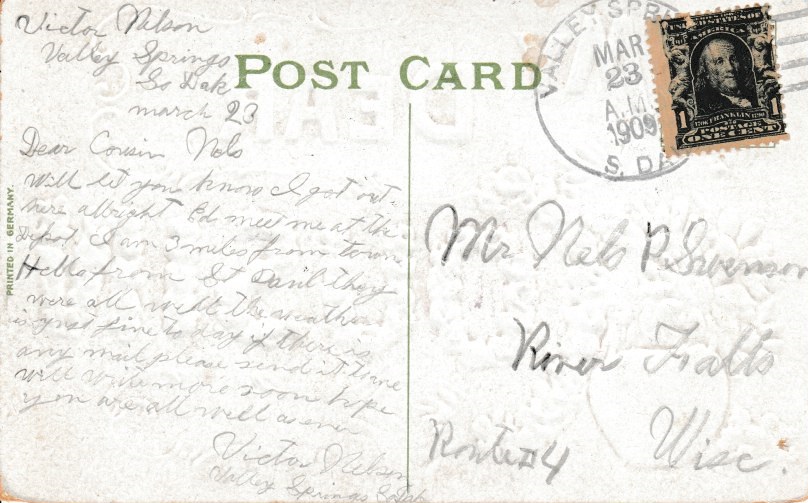 Victor Nilson
Valley Springs
So Dak
march 23
POST CARD
Dear Cousin Nels
Will let you know I got out
here allright Ed meet me at the
Depot. I am 3 miles from town
Hello from St Paul they
were all well the weather
is just fine to day if there is
any mail please send it to me
will write more soon hope
you are all well as ever
Victor Nelson
Valley Springs S Dak
PRINTED IN GERMANY.
VALLEY SPRI
MAR
23
A.M.
1909
S. DA
UNITED STATES OF
AMERICA
1706 FRANKLIN 1790
1 POSTAGE 1
ONE CENT
Mr Nels P. Swenson
River Falls
Route #4 Wisc.